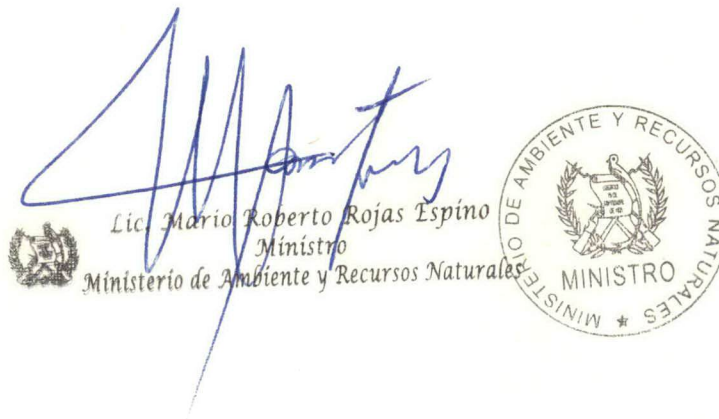 Lic. Mario Roberto Rojas Espino
Ministro
Ministerio de Ambiente y Recursos Naturales
MINISTERIO DE AMBIENTE Y RECURSOS NATURALES
MINISTRO